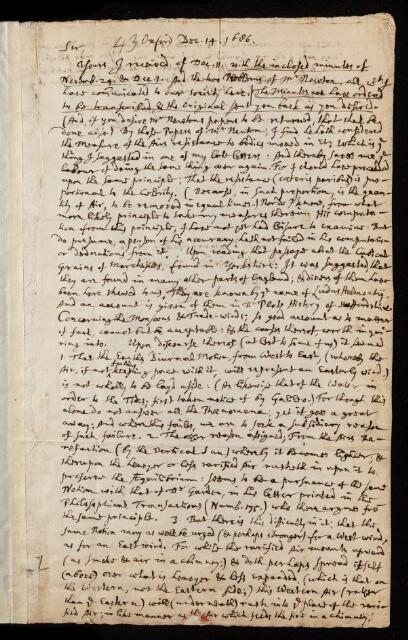 43 Oxford Dec. 14. 1686.
Sir,
Yours I received of Dec. 11. with the inclosed minutes of
Novemb. 24. & Dec. 1. And the two Problems of Mr Newton, all wch I
have communicated to our society here. The Minutes we have ordered
to be transcribed, & the Original sent you back as you desired.
(And, if you desire Mr Newtons papers to be returned, that shall be
done also.) By those Papers of Mr Newton, I find he hath considered
the Measure of the Airs resistance to bodies moved in it; which is the
thing I suggested in one of my late letters: And thereby saves me the
labour of doing the same thing over again. For I should have proceeded
upon the same principle; That the resistance (caeteris paribus) is pro-
portional to the Celerity. (Because, in such proportion, is the quan-
tity of Air, to be removed in equal times.) Nor do I know, from what
more likely principle to take my measures therein. His computa-
tion from this principle, I have not yet had leisure to examine. But
do presume, a person of his accuracy hath not failed in his computation
or deductions from it. Upon reading that passage about the Cubical
grains of Marchasites, found in Yorkshire: It was suggested that
they are found in many other parts of England; & divers of them have
been here shewed us; They are known by the name of Ludus Helmontii.
And an account is given of them in Dr Plots History of
Concerning the Monsoons & Trade-winds; So good account as to matter
of fact, cannot but be acceptable: & the causes thereof, worth inqui-
ring into. Upon discourse thereof (at lest to some of us) it seemed
1. That the Earths Diurnal Motion, from West to East, (whereby the
Air, if not keeping pace with it, will represent an Easterly wind,)
is not wholly to be layd aside: (As likewise that of the Water in
order to the Tides; first taken notice of by Galileo.) For though this
alone do not answer all the Phaenomena; yet it goes a great
way: And where this fails, we are to seek a subsidiary reason
of such failure. 2. The other reason assigned; From the Airs Ra-
refaction (by the vertical sun) whereby it becomes lighter, &
thereupon the heavyer or less rarified Air rusheth in upon it to
preserve the Aequilibrium: seems to be a pursuance of the same
Notion with that of Dr Garden, in his letter printed in the
Philosophical Transactions (Numb. 175.) who there argues from
the same principle. 3. But there is this difficulty in it; that the
same Notion may as well be urged (& perhaps stronger) for a West wind,
as for an East wind. For while the rarified Air mounts upward
(as smoke & air in a chimny;) & doth perhaps spread itself
(above) over what is heavyer & less expanded, (which is that on
the Western, not the Eastern side;) this Western Air (rather
than the Eastern) will (underneath) rush into the place of the rarifi-
fied Air; in like manner as the Air which feeds the fire in a chimny,